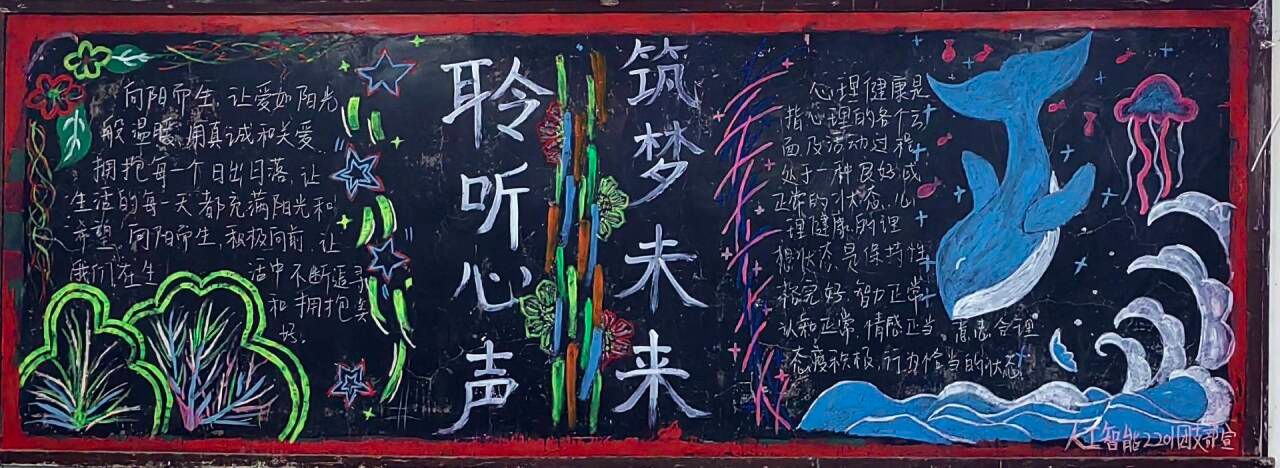 向阳而生,让爱如阳光
般温暖,用真诚和关爱,
拥抱每一个日出日落,让
生活的每一天都充满阳光和
希望,向阳而生,积极向前,让
我们在生活中不断追寻
和拥抱美
好。
聆听心声
筑梦未来
心理健康是
指心理的各个方
面及活动过程
处于一种良好或
正常的状态,心
理健康的理
想状态是保持性
格完好,智力正常,
认知正常,情感正当,意志合理,
态度积极,行为恰当的状态
人工智能2201团支部宣